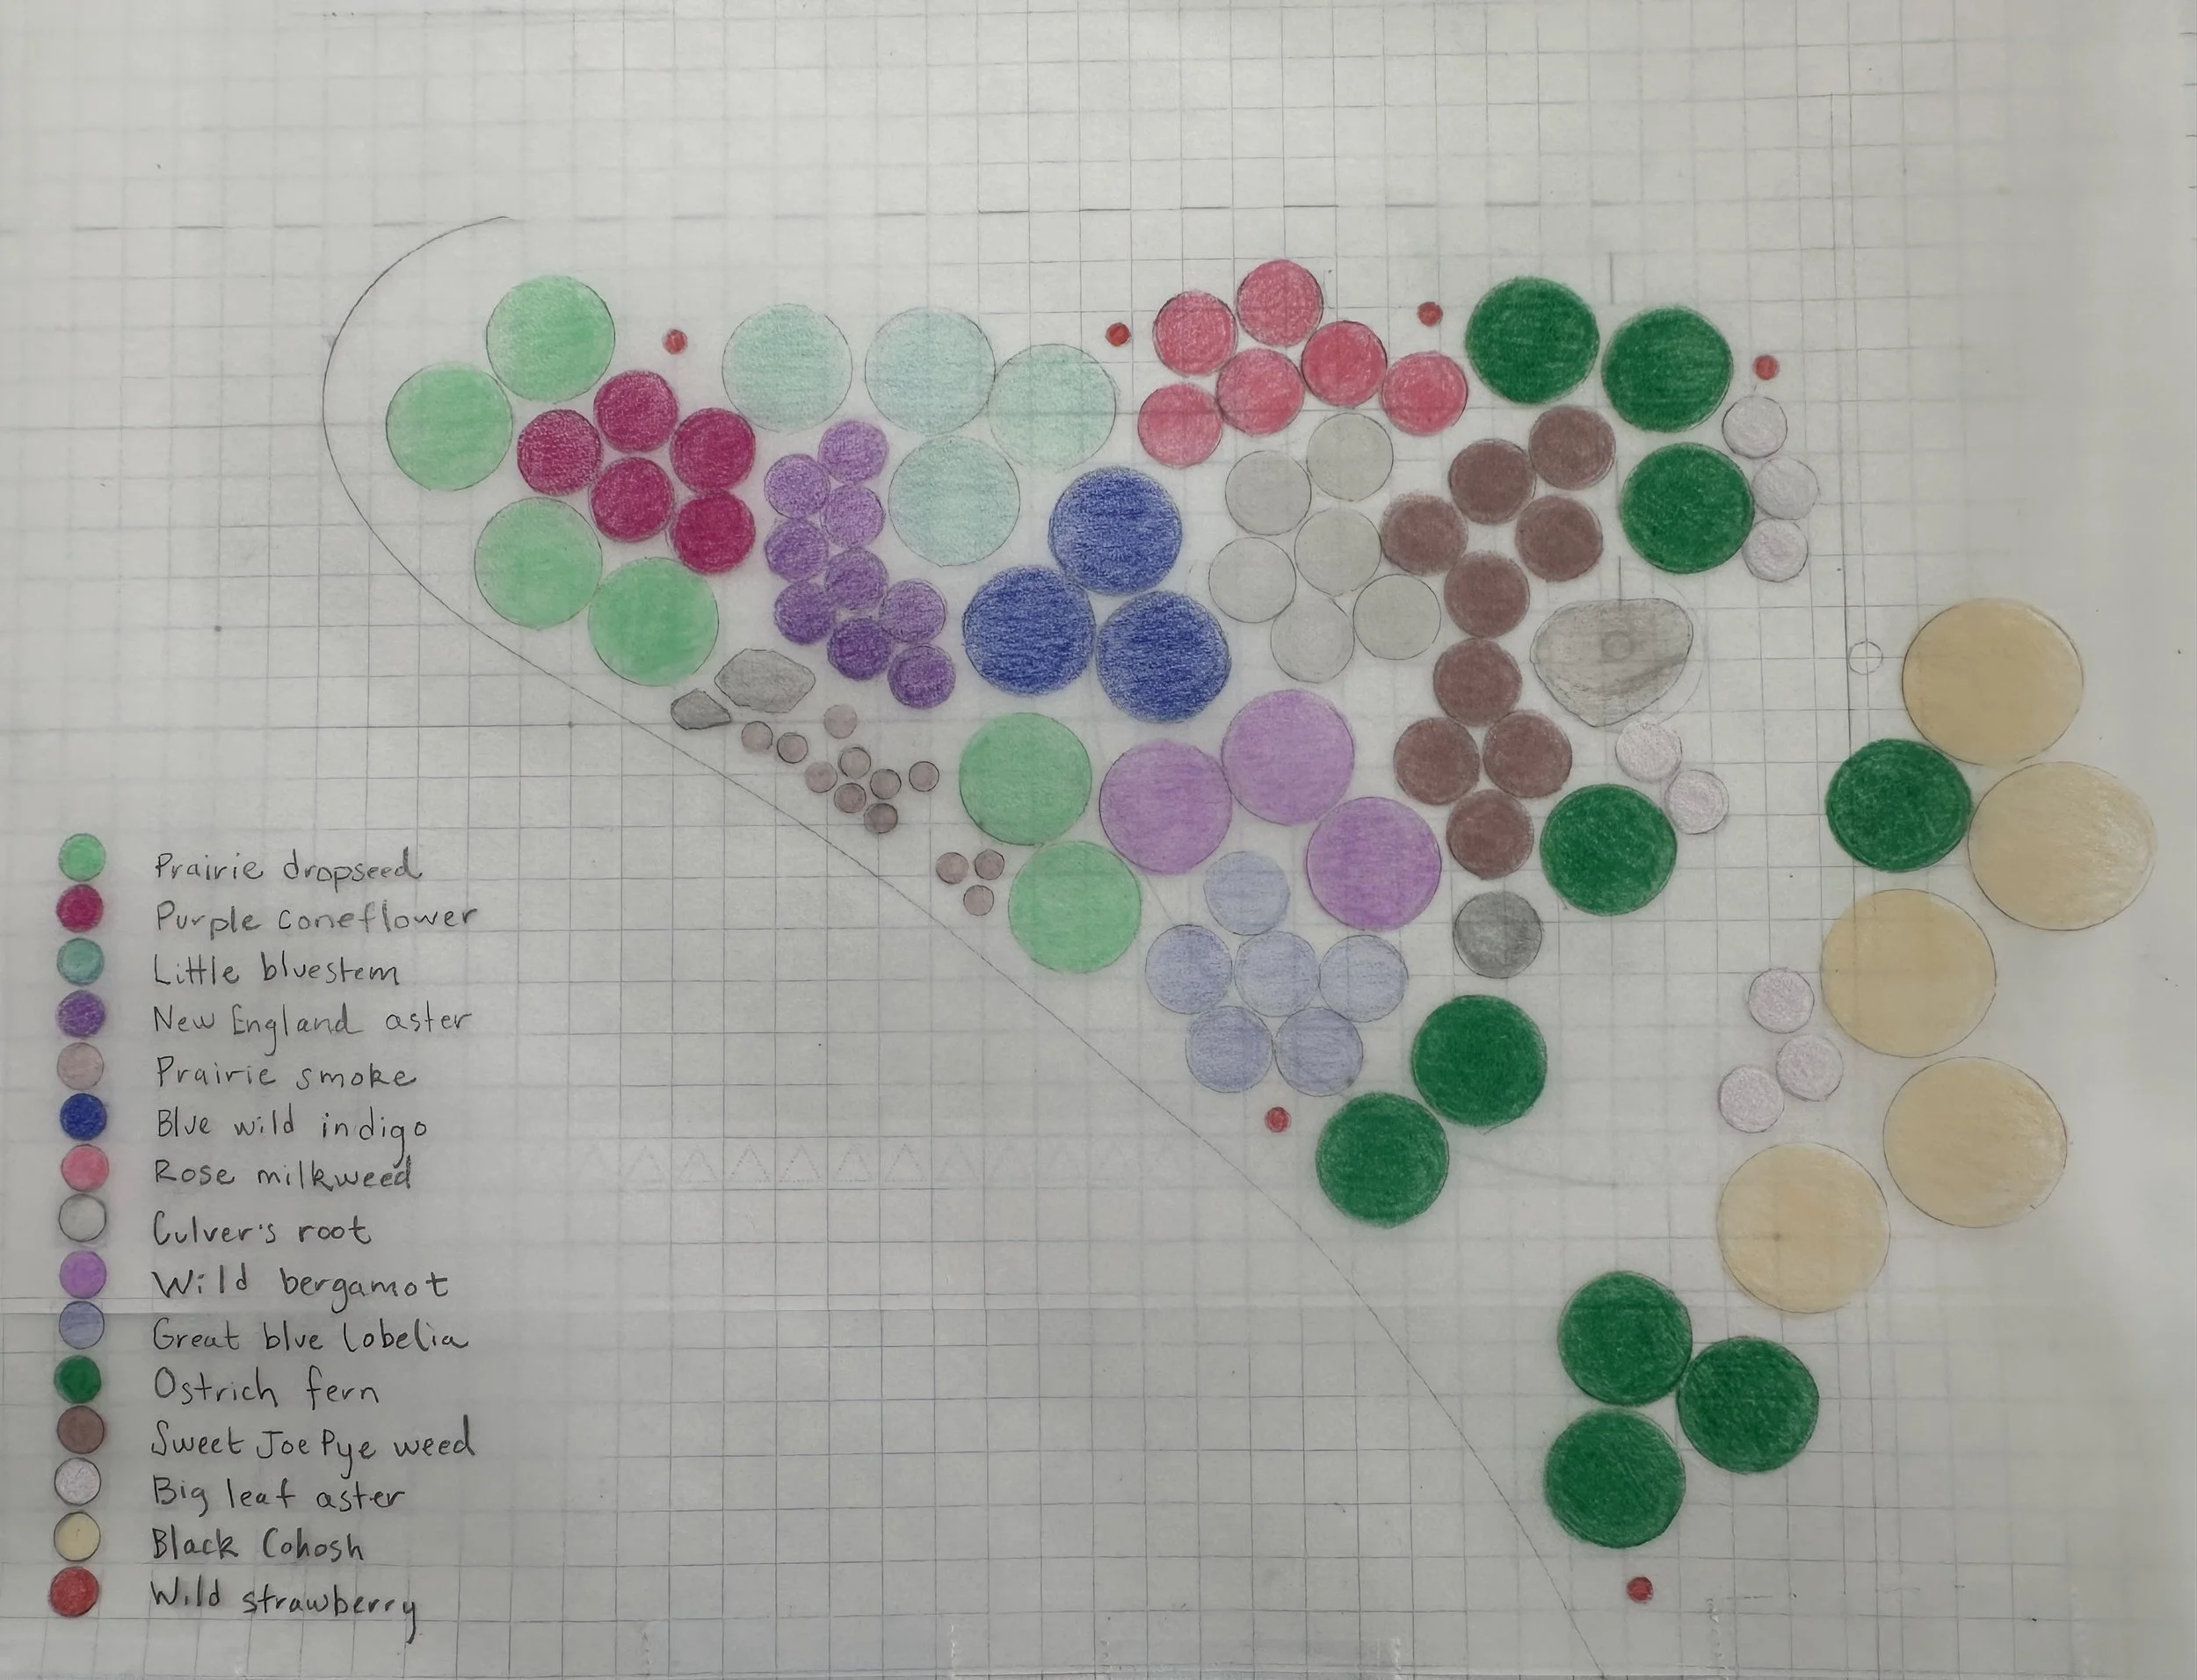 Prairie dropseed
Purple coneflower
Little bluestem
New England aster
Prairie smoke
Blue wild indigo
Rose milkweed
Culver's root
Wild bergamot
Great blue lobelia
Ostrich fern
Sweet Joe Pye weed
Big leaf aster
Black Cohosh
Wild strawberry